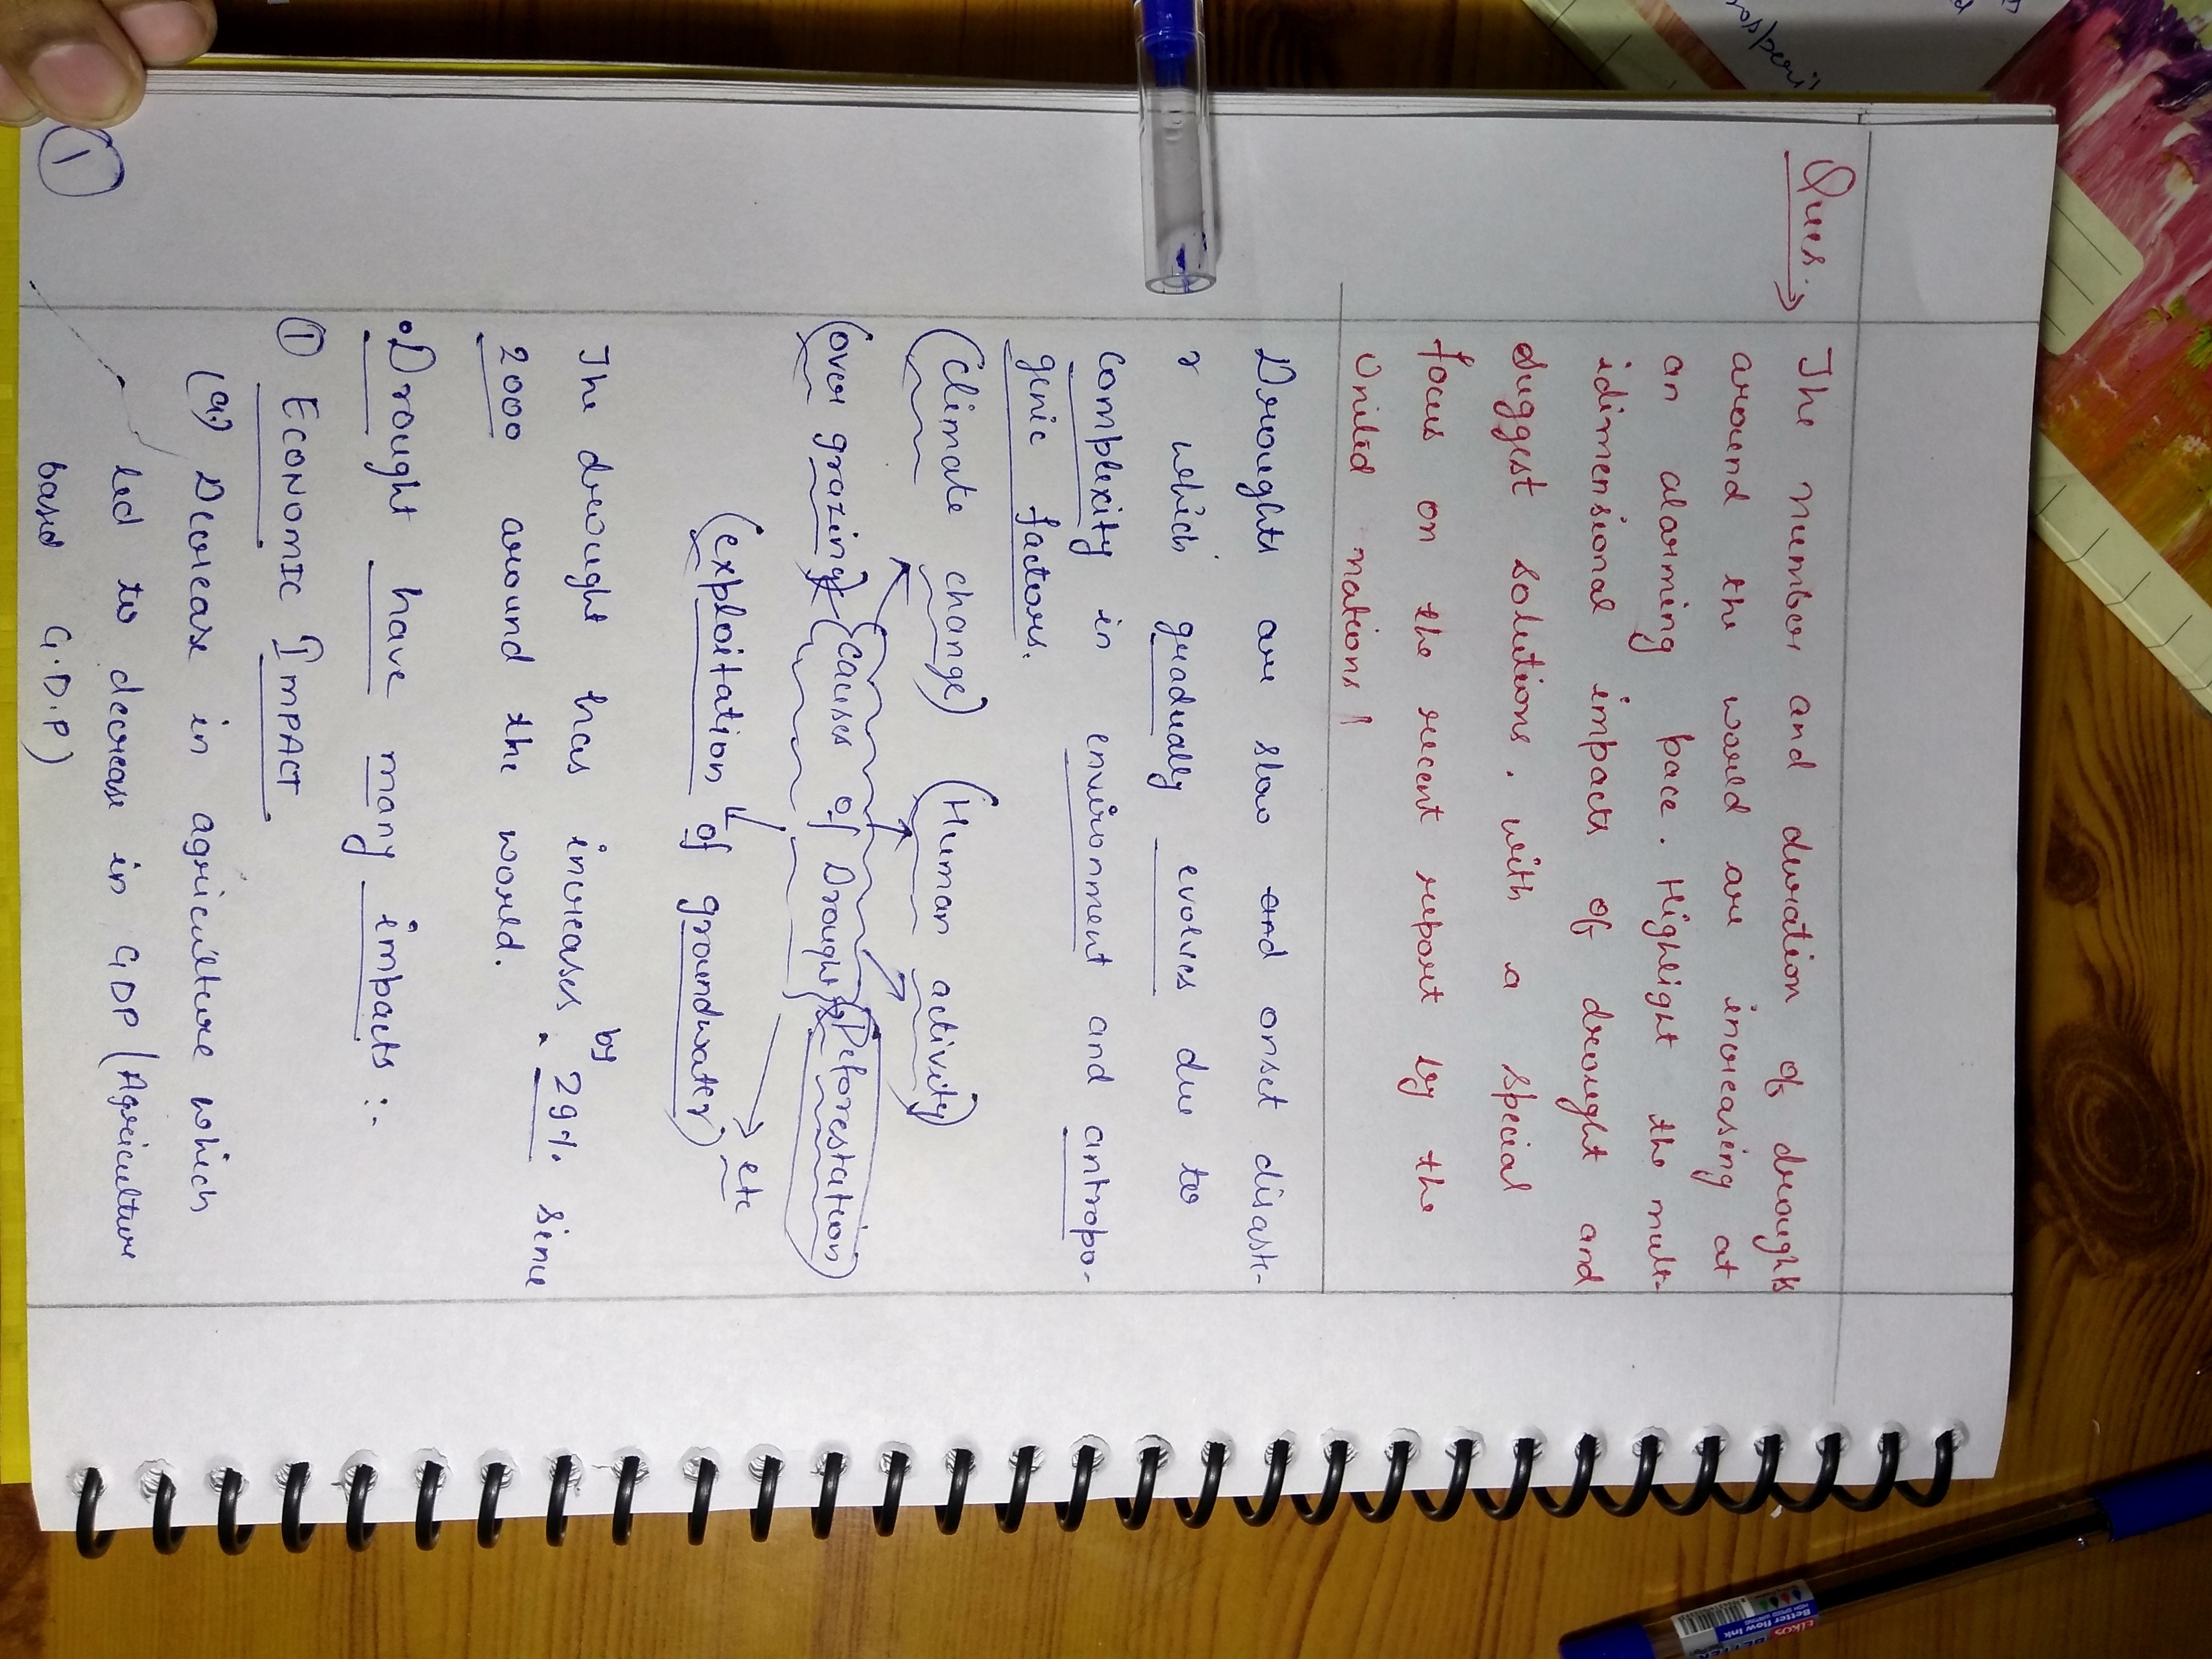 Ques. →
The number and duration of droughts
around the world are increasing at
an alarming pace. Highlight the mult-
idimensional impacts of drought and
suggest solutions. with a special
focus on the recent report by the
United nations!
Droughts are slow and onset disast-
r which gradually evolves due to
complexity in environment and antropo-
genic factors.
(Climate change) (Human activity)
(over grazing) (Causes of Drought) (Deforestation)
(exploitation of groundwater) etc
The drought has increases by 29% since
2000 around the world.
• Drought have many impacts :-
① ECONOMIC ImPACT
(a.) Decrease in agriculture which
led to decrease in GDP (Agriculture
based G.D.P)
1
Elkos
Better flow Ink